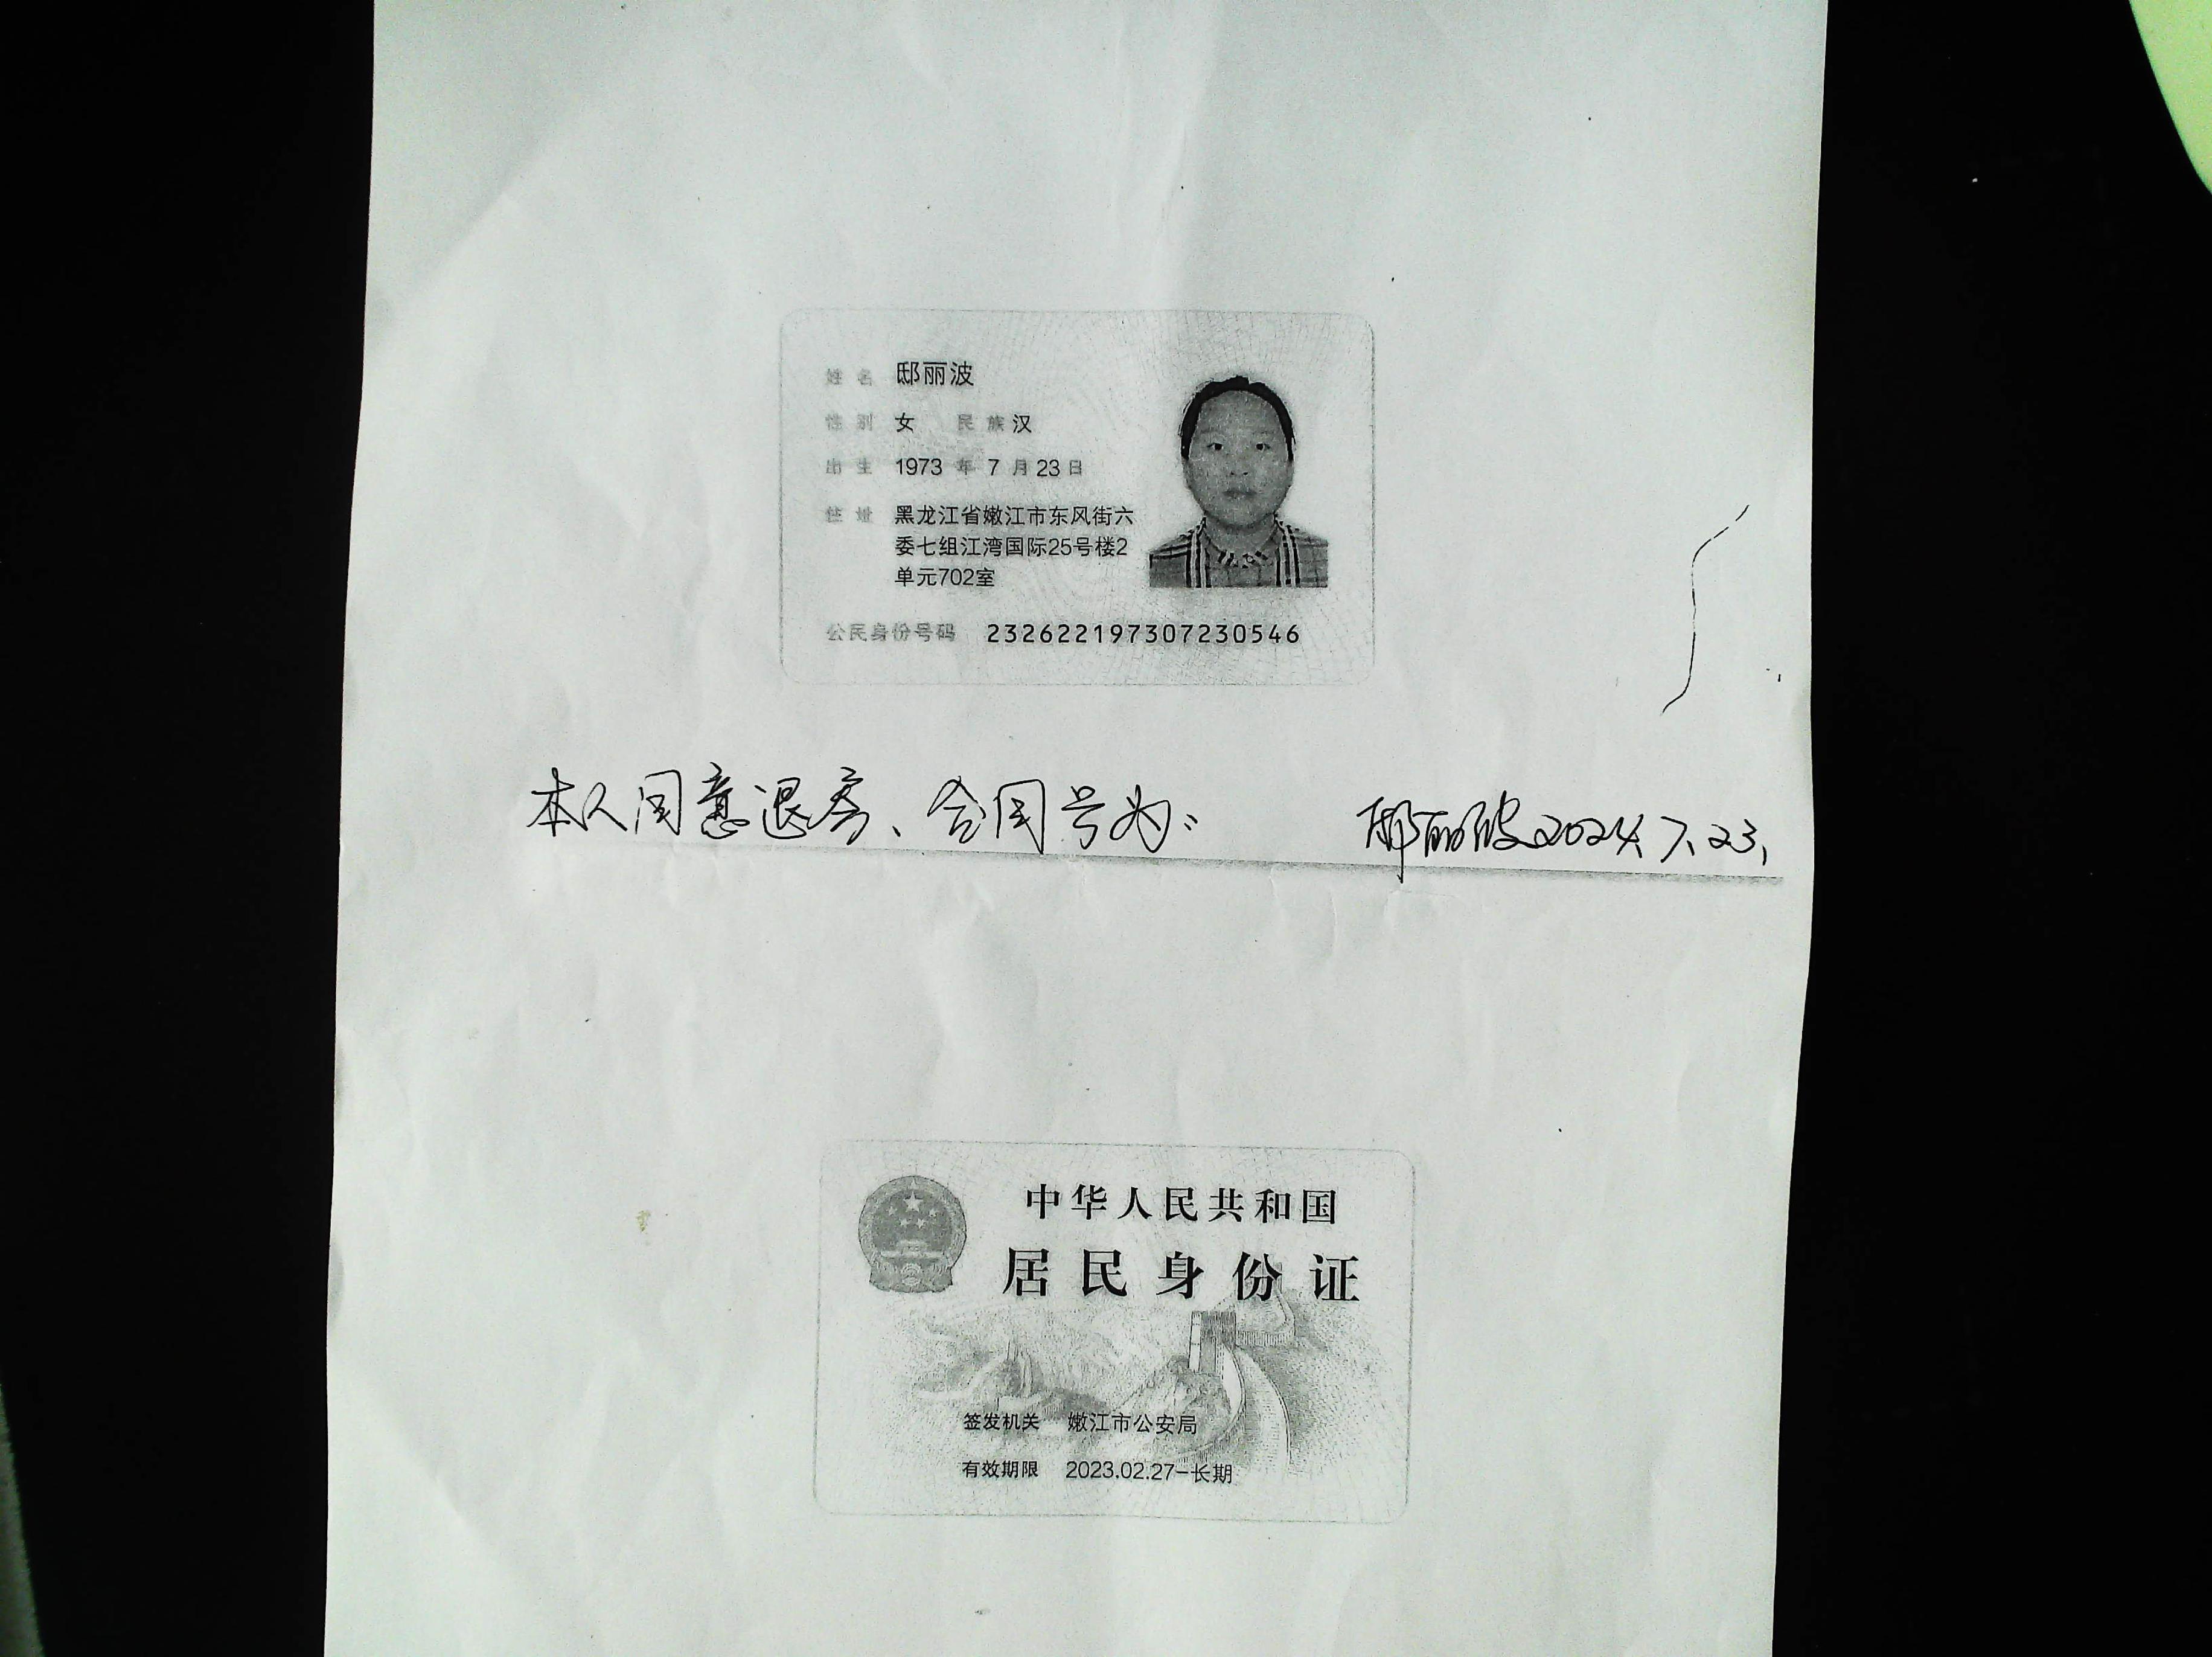 姓名 邸丽波
性别 女 民族 汉
出生 1973 年 7 月 23 日
住址 黑龙江省嫩江市东风街六
委七组江湾国际25号楼2
单元702室
公民身份号码 232622197307230546
本人同意退房、合同号为: 邸丽波2024.7.23.
中华人民共和国
居民身份证
签发机关 嫩江市公安局
有效期限 2023.02.27-长期